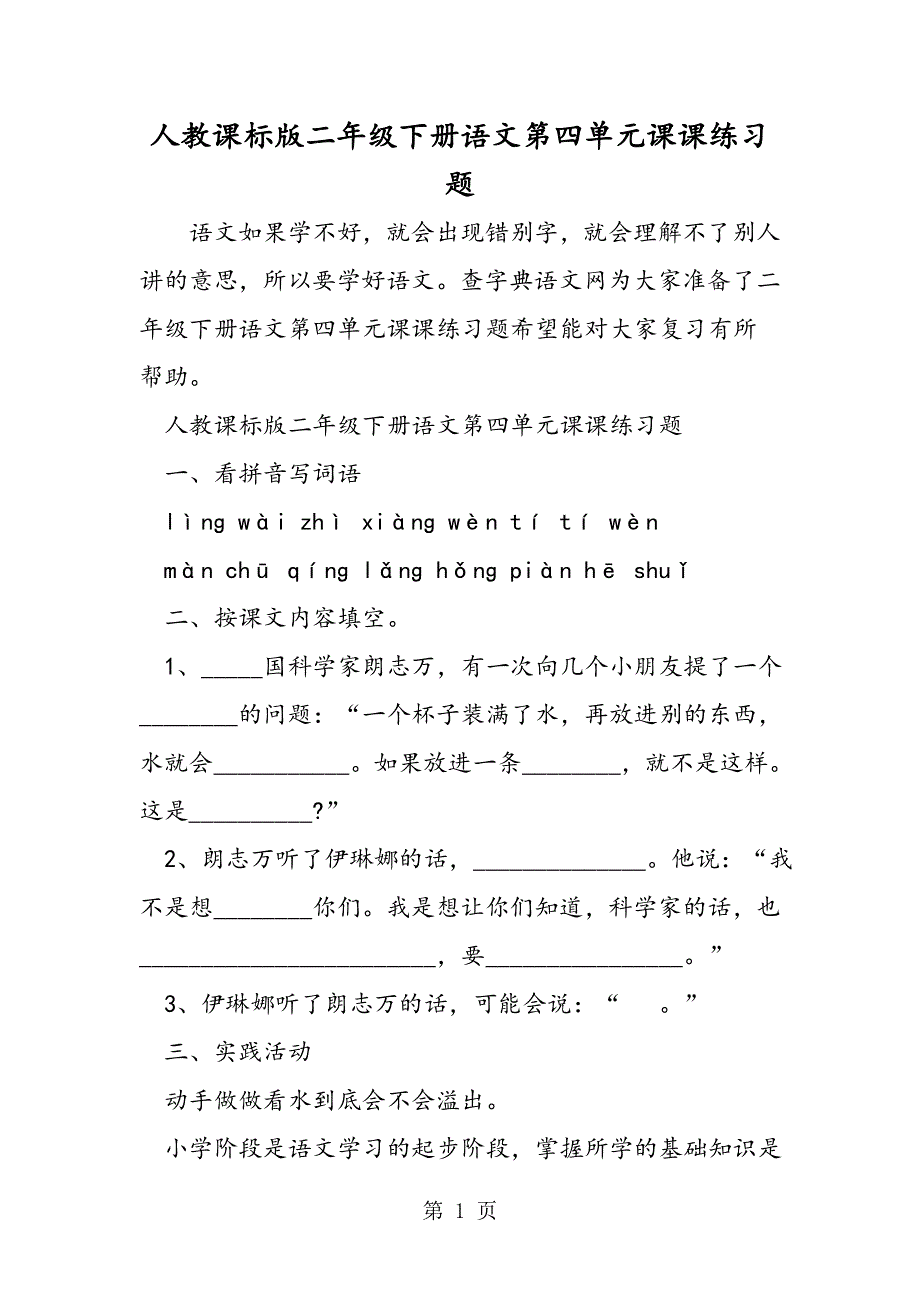 人教课标版二年级下册语文第四单元课课练习
题
语文如果学不好，就会出现错别字，就会理解不了别人
讲的意思，所以要学好语文。查字典语文网为大家准备了二
年级下册语文第四单元课课练习题希望能对大家复习有所
帮助。
人教课标版二年级下册语文第四单元课课练习题
一、看拼音写词语
lìng wài zhì xiàng wèn tí tí wèn
màn chū qíng lǎng hǒng piàn hē shuǐ
二、按课文内容填空。
1、_____国科学家朗志万，有一次向几个小朋友提了一个
________的问题：“一个杯子装满了水，再放进别的东西，
水就会___________。如果放进一条________，就不是这样。
这是__________?”
2、朗志万听了伊琳娜的话，______________。他说：“我
不是想________你们。我是想让你们知道，科学家的话，也
________________________，要________________。”
3、伊琳娜听了朗志万的话，可能会说：“　　。”
三、实践活动
动手做做看水到底会不会溢出。
小学阶段是语文学习的起步阶段，掌握所学的基础知识是
第 1 页